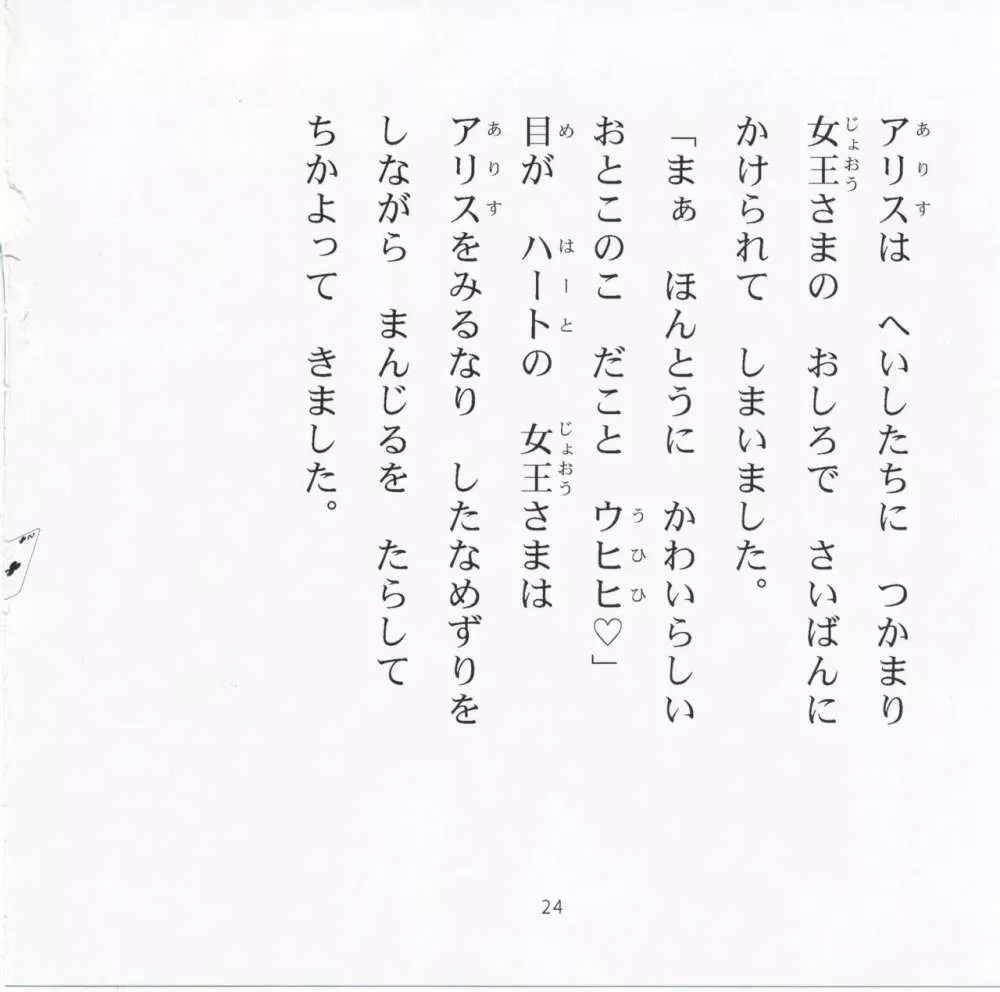 アリスは　へいしたちに　つかまり
女王さまの　おしろで　さいばんに
かけられて　しまいました。
「まぁ　ほんとうに　かわいらしい
おとこのこ　だこと　ウヒヒ♡」
目が　ハートの　女王さまは
アリスをみるなり　したなめずりを
しながら　まんじるを　たらして
ちかよって　きました。
24